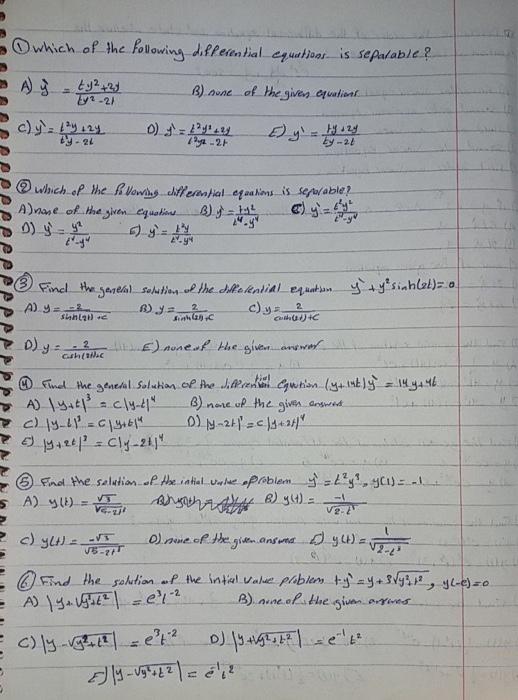 ① which of the following differential equations is separable?
A) y` = (ty²+2y)/(ty²-2t) B) none of the given equations
C) y` = (t²y+2y)/(t²y-2t) D) y` = (t²y²+2y)/(t²y²-2t) E) y` = (ty+2y)/(ty-2t)
② which of the following differential equations is separable?
A) none of the given equations B) y` = (ty²)/(t⁴-y⁴) C) y` = (t²y²)/(t⁴-y⁴)
D) y` = y²/(t⁴-y⁴) E) y` = (t²y)/(t⁴-y⁴)
③ Find the general solution of the differential equation y` + y² sinh(2t) = 0
A) y = -2/(sinh(2t)+c) B) y = 2/(sinh(2t)+c) C) y = 2/(cosh(2t)+c)
D) y = -2/(cosh(2t)+c) E) none of the given answer
④ Find the general solution of the differential equation (y+14t)y` = 14y+4t
A) |y+t|³ = c|y-t|⁴ B) none of the given answers
C) |y-t|³ = c|y+t|⁴ D) |y-2t|³ = c|y+2t|⁴
E) |y+2t|³ = c|y-2t|⁴
⑤ Find the solution of the intial value oproblem y` = t²y³, y(1) = -1
A) y(t) = √3/√(5-2t³) B) y(t) = -1/√(2-t³)
C) y(t) = -√3/√(5-2t³) D) none of the given answers E) y(t) = 1/√(2-t³)
⑥ Find the solution of the intial value problem ty` = y+3√(y²+t²), y(-e) = 0
A) |y+√(y²+t²)| = e³t⁻² B) none of the given answers
C) |y-√(y²+t²)| = e³t⁻² D) |y+√(y²+t²)| = e⁻¹t²
E) |y-√(y²+t²)| = e⁻¹t²